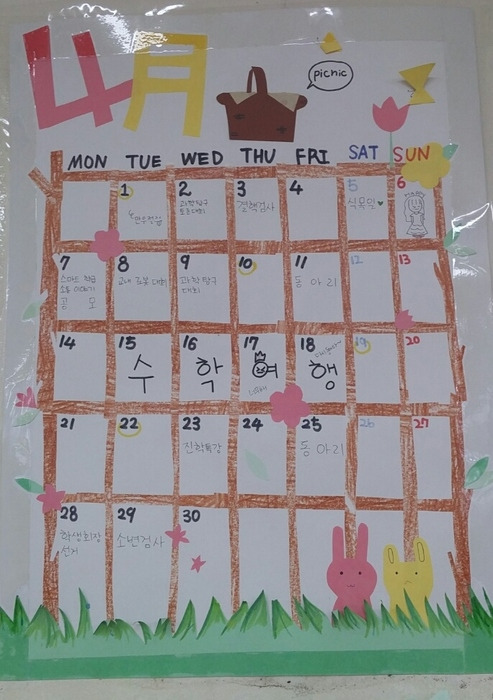 4月
picnic
MON TUE WED THU FRI SAT SUN
1 2 3 4 5 6
만우절
과학탐구
토론대회
결핵검사
식목일
7 8 9 10 11 12 13
스마트 학급
공모
교내 로봇 대회
과학탐구
대회
동아리
14 15 16 17 18 19 20
수 학 여 행
21 22 23 24 25 26 27
진학특강
동아리
28 29 30
학생회장
선거
소변검사